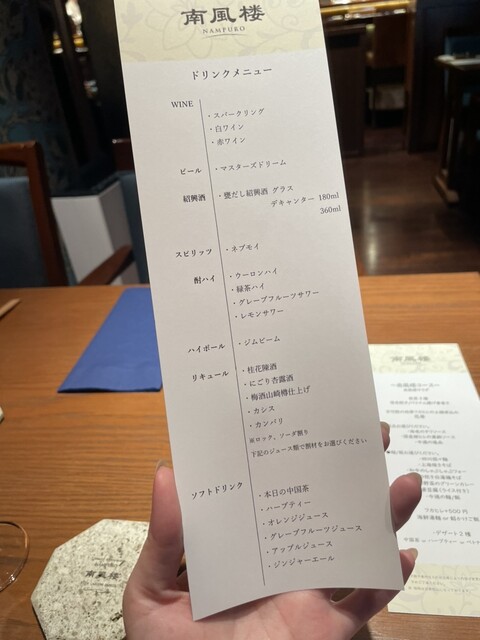 南風楼
NAMPURO
ドリンクメニュー
WINE
・スパークリング
・白ワイン
・赤ワイン
ビール ・マスターズドリーム
紹興酒 ・甕だし紹興酒 グラス
デキャンター 180ml
360ml
スピリッツ ・ネプモイ
酎ハイ ・ウーロンハイ
・緑茶ハイ
・グレープフルーツサワー
・レモンサワー
ハイボール ・ジムビーム
リキュール ・桂花陳酒
・にごり杏露酒
・梅酒山崎樽仕上げ
・カシス
・カンパリ
※ロック、ソーダ割り
下記のジュース類で割材をお選びください
ソフトドリンク ・本日の中国茶
・ハーブティー
・オレンジジュース
・グレープフルーツジュース
・アップルジュース
・ジンジャーエール
南風楼
南風楼
フカヒレ+500円
・デザート2種